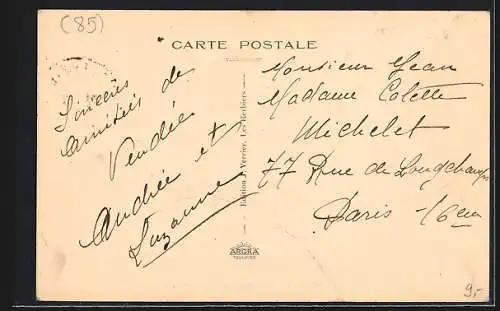 (85)
CARTE POSTALE
Sincères
Amitiés de
Vendée
Andrée et
Suzanne
Edition J. Verrier, Les Herbiers
ARGRA
Monsieur Jean
Madame Colette
Michelet
77 Rue de Longchamps
Paris - 16em
9,-